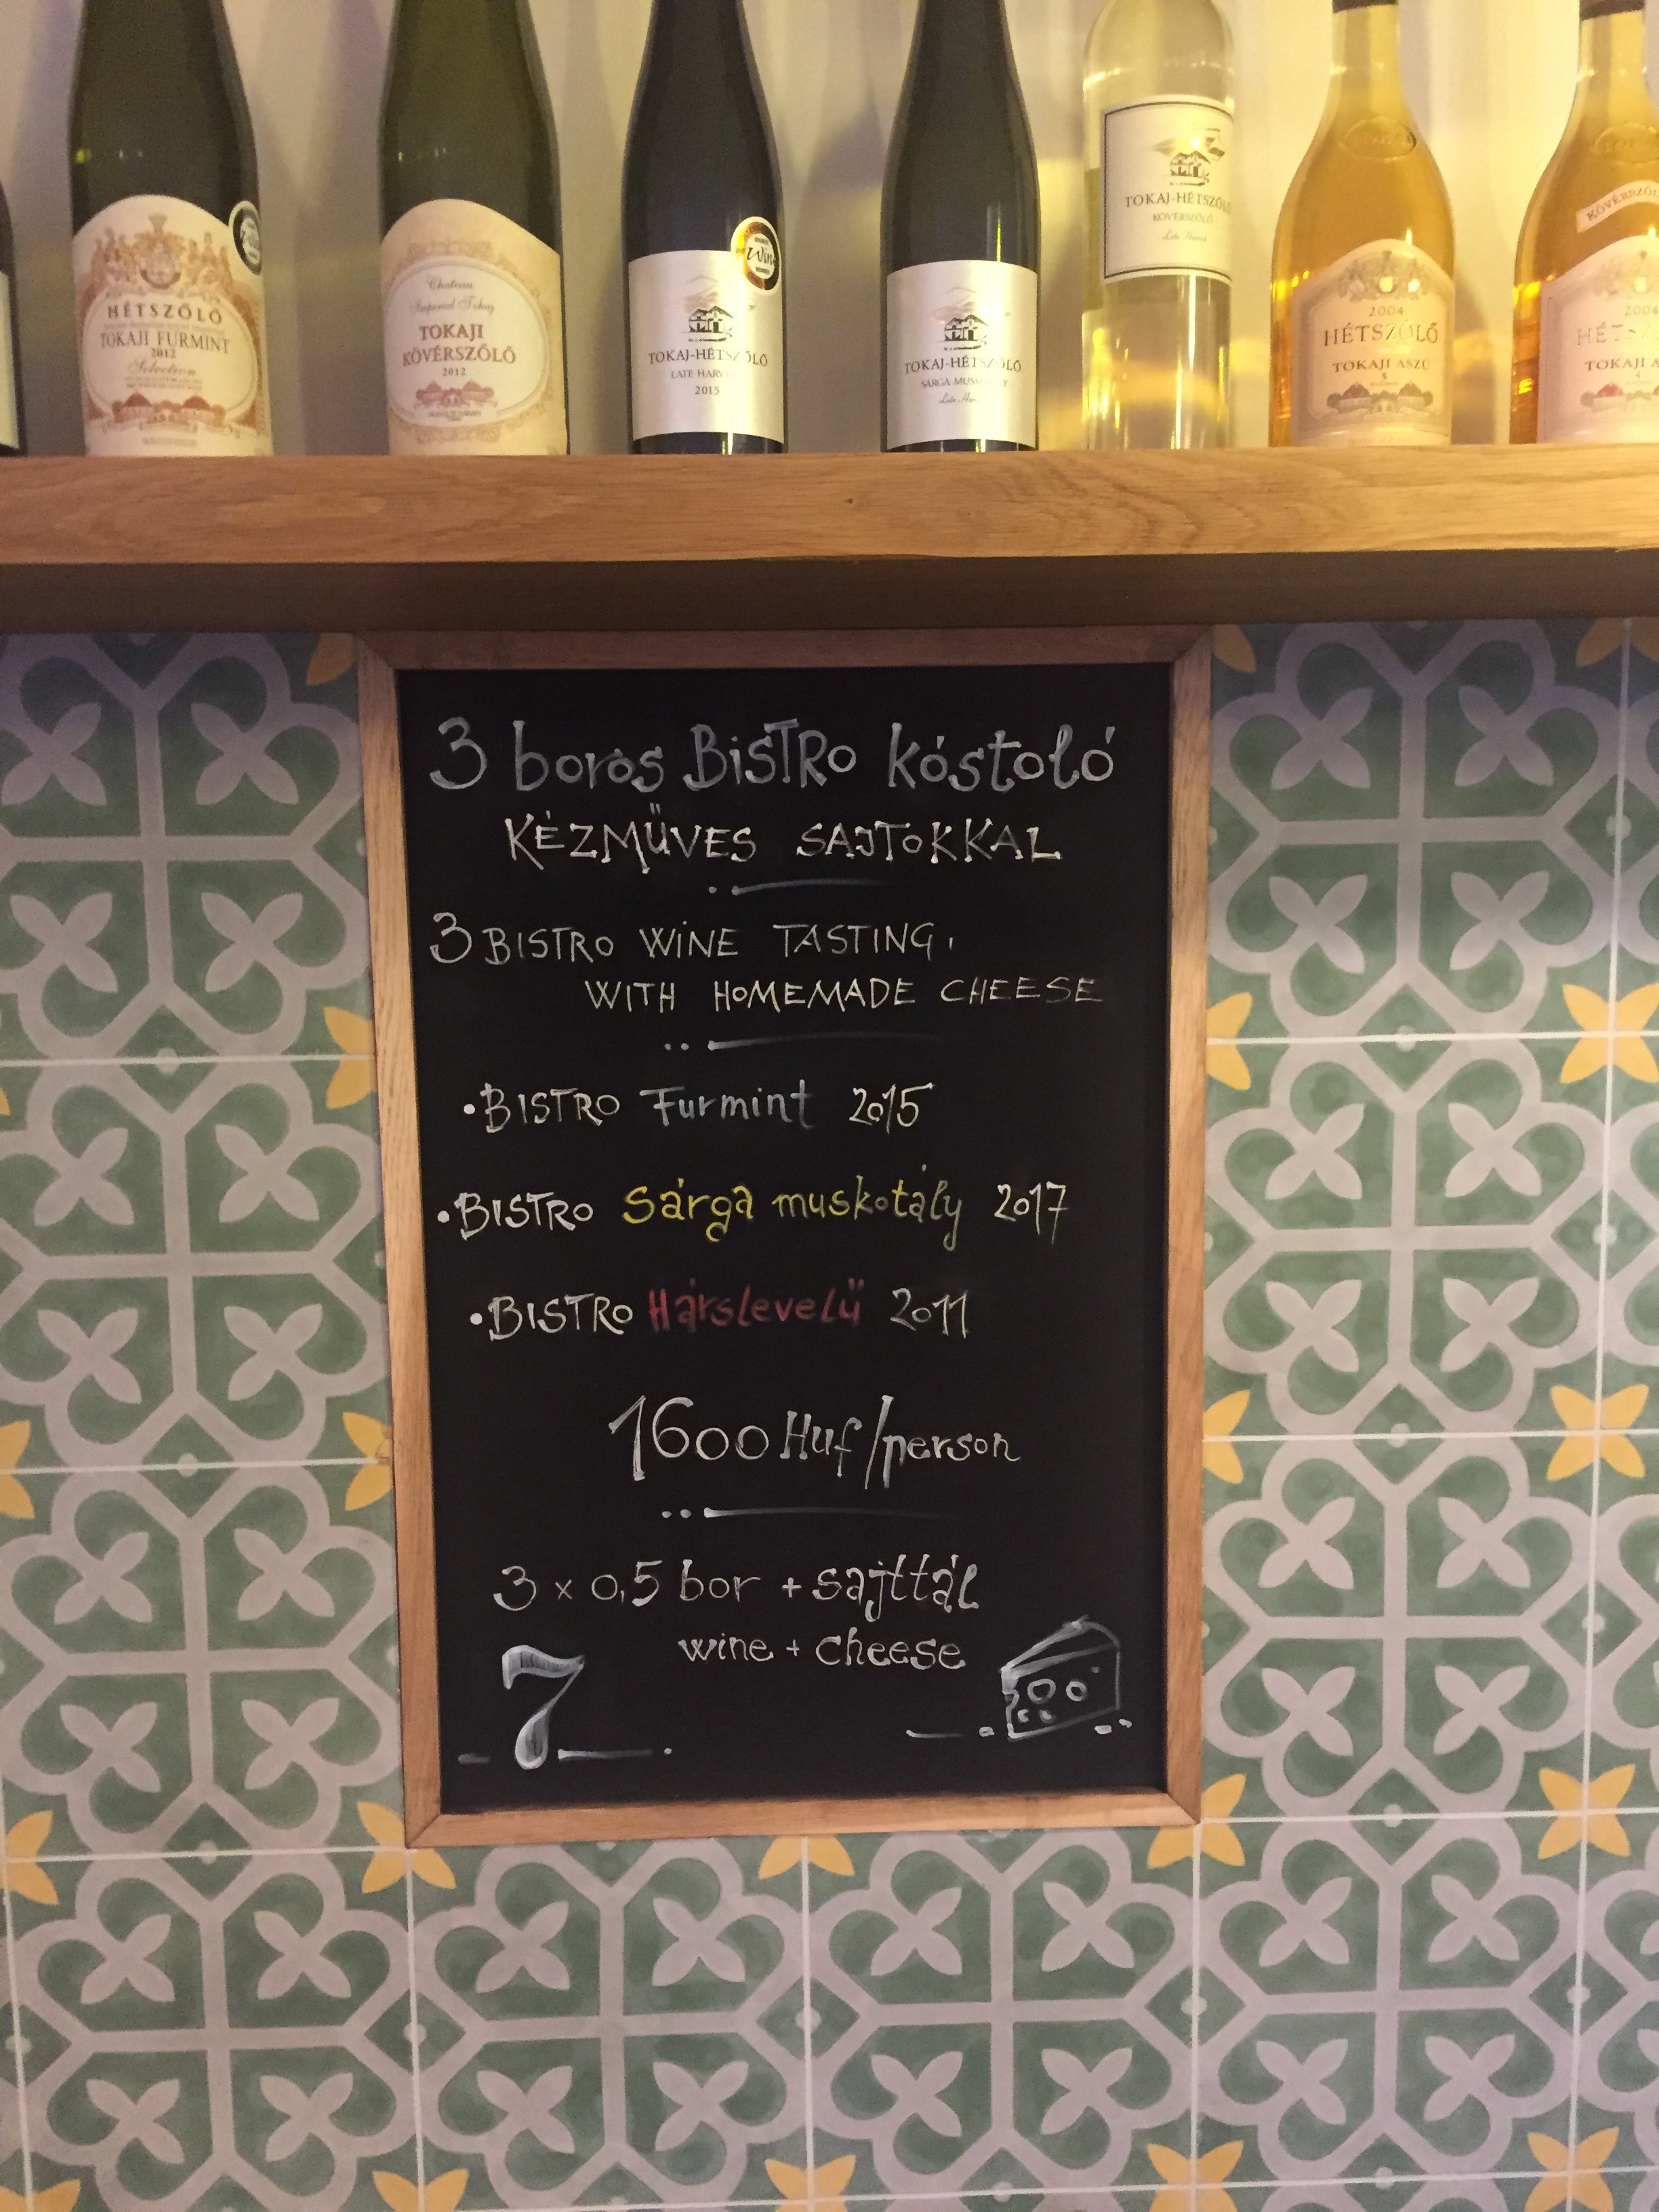 HÉTSZŐLŐ
TOKAJI FURMINT
2012
Selection
Chateau
Imperial Tokaj
TOKAJI
KÖVÉRSZŐLŐ
2012
Wine
TOKAJ-HÉTSZŐLŐ
LATE HARVEST
2015
TOKAJ-HÉTSZŐLŐ
SÁRGA MUSKOTÁLY
TOKAJ-HÉTSZŐLŐ
KÖVÉRSZŐLŐ
Late Harvest
2004
HÉTSZŐLŐ
TOKAJI ASZÚ
5
KÖVÉRSZŐLŐ
2004
TOKAJI A
3 boros BiSTRo kóstoló
KÉZMŰVES SAJTOKKAL
3 BISTRO WiNE TASTING,
WITH HOMEMADE CHEESE
• BISTRO Furmint 2015
• BISTRO Sárga muskotály 2017
• BISTRO Hárslevelű 2011
1600 Huf/person
3 x 0,5 bor + sajttál
wine + cheese
7